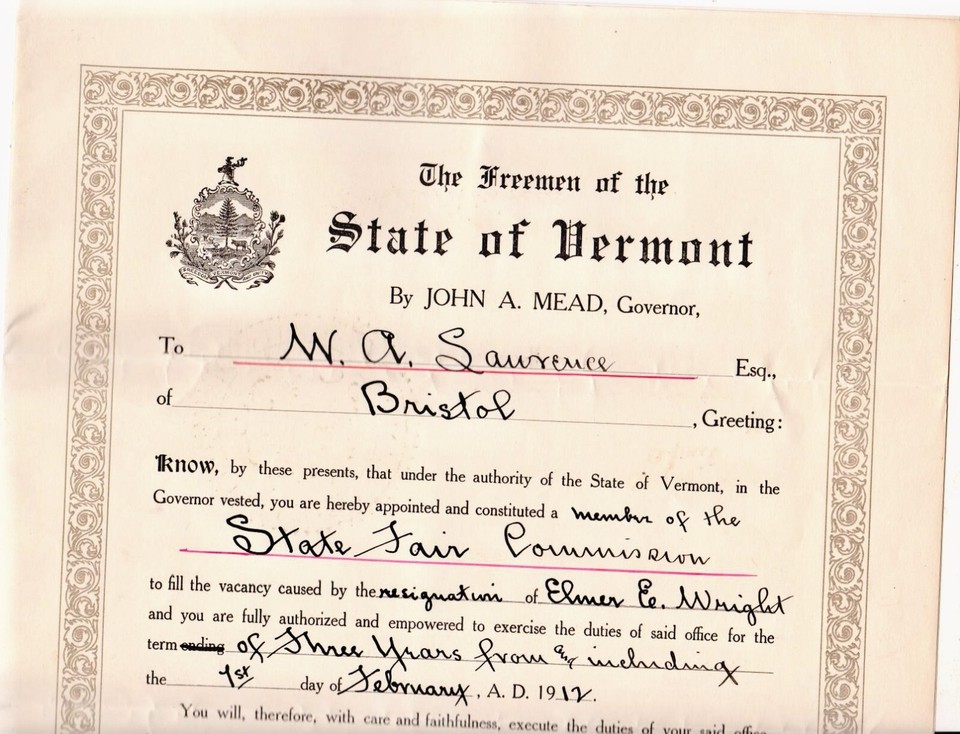 The Freemen of the
State of Vermont
By JOHN A. MEAD, Governor,
To W. A. Lawrence Esq.,
of Bristol, Greeting:
Know, by these presents, that under the authority of the State of Vermont, in the
Governor vested, you are hereby appointed and constituted a member of the
State Fair Commission
to fill the vacancy caused by the resignation of Elmer E. Wright
and you are fully authorized and empowered to exercise the duties of said office for the
term ending of Three Years from and including
the 1st day of February, A. D. 1912.
You will, therefore, with care and faithfulness, execute the duties of your said office